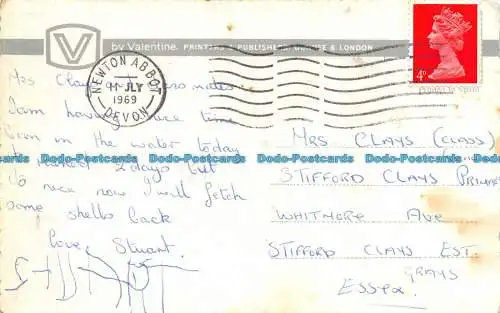 by Valentine. PRINTERS & PUBLISHERS, DUNDEE & LONDON
NEWTON ABBOT
JLY
1969
DEVON
4D
Mrs Clays
I am having nice time
been on the water today
it rained 2 days but
is nice now I will fetch
some shells back
love, Stuart.
MRS CLAYS (CLASS)
STIFFORD CLAYS PRIMARY
WHITMORE AVE
STIFFORD CLAYS EST.
GRAYS
ESSEX.
Dodo-Postcards Dodo-Postcards Dodo-Postcards Dodo-Postcards